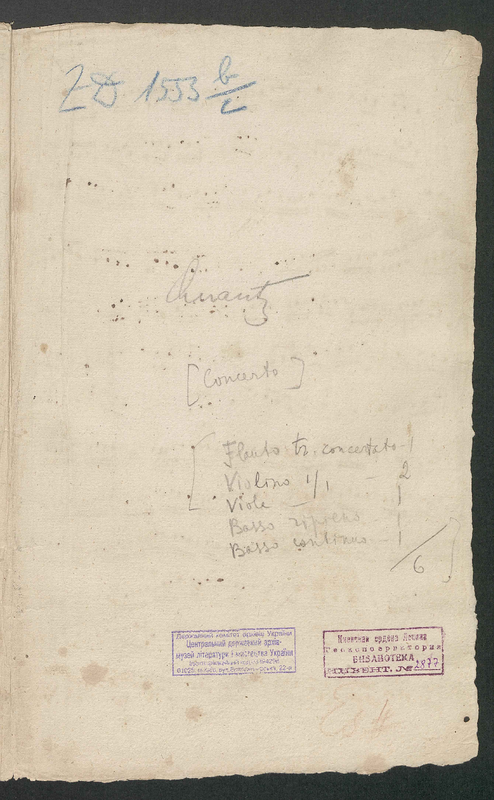 ZD 1553 b/c
Quantz
[Concerto]
Flauto tr. concertato 1
Violino 1/1 - 2
Viole - 1
Basso ripieno - 1
Basso continuo - 1
6
Державний комітет архівів України
Центральний державний архів-
музей літератури і мистецтва України
Киевская ордена Ленина
Госконсерватория
БИБЛИОТЕКА
ИНВЕНТ. № 2877